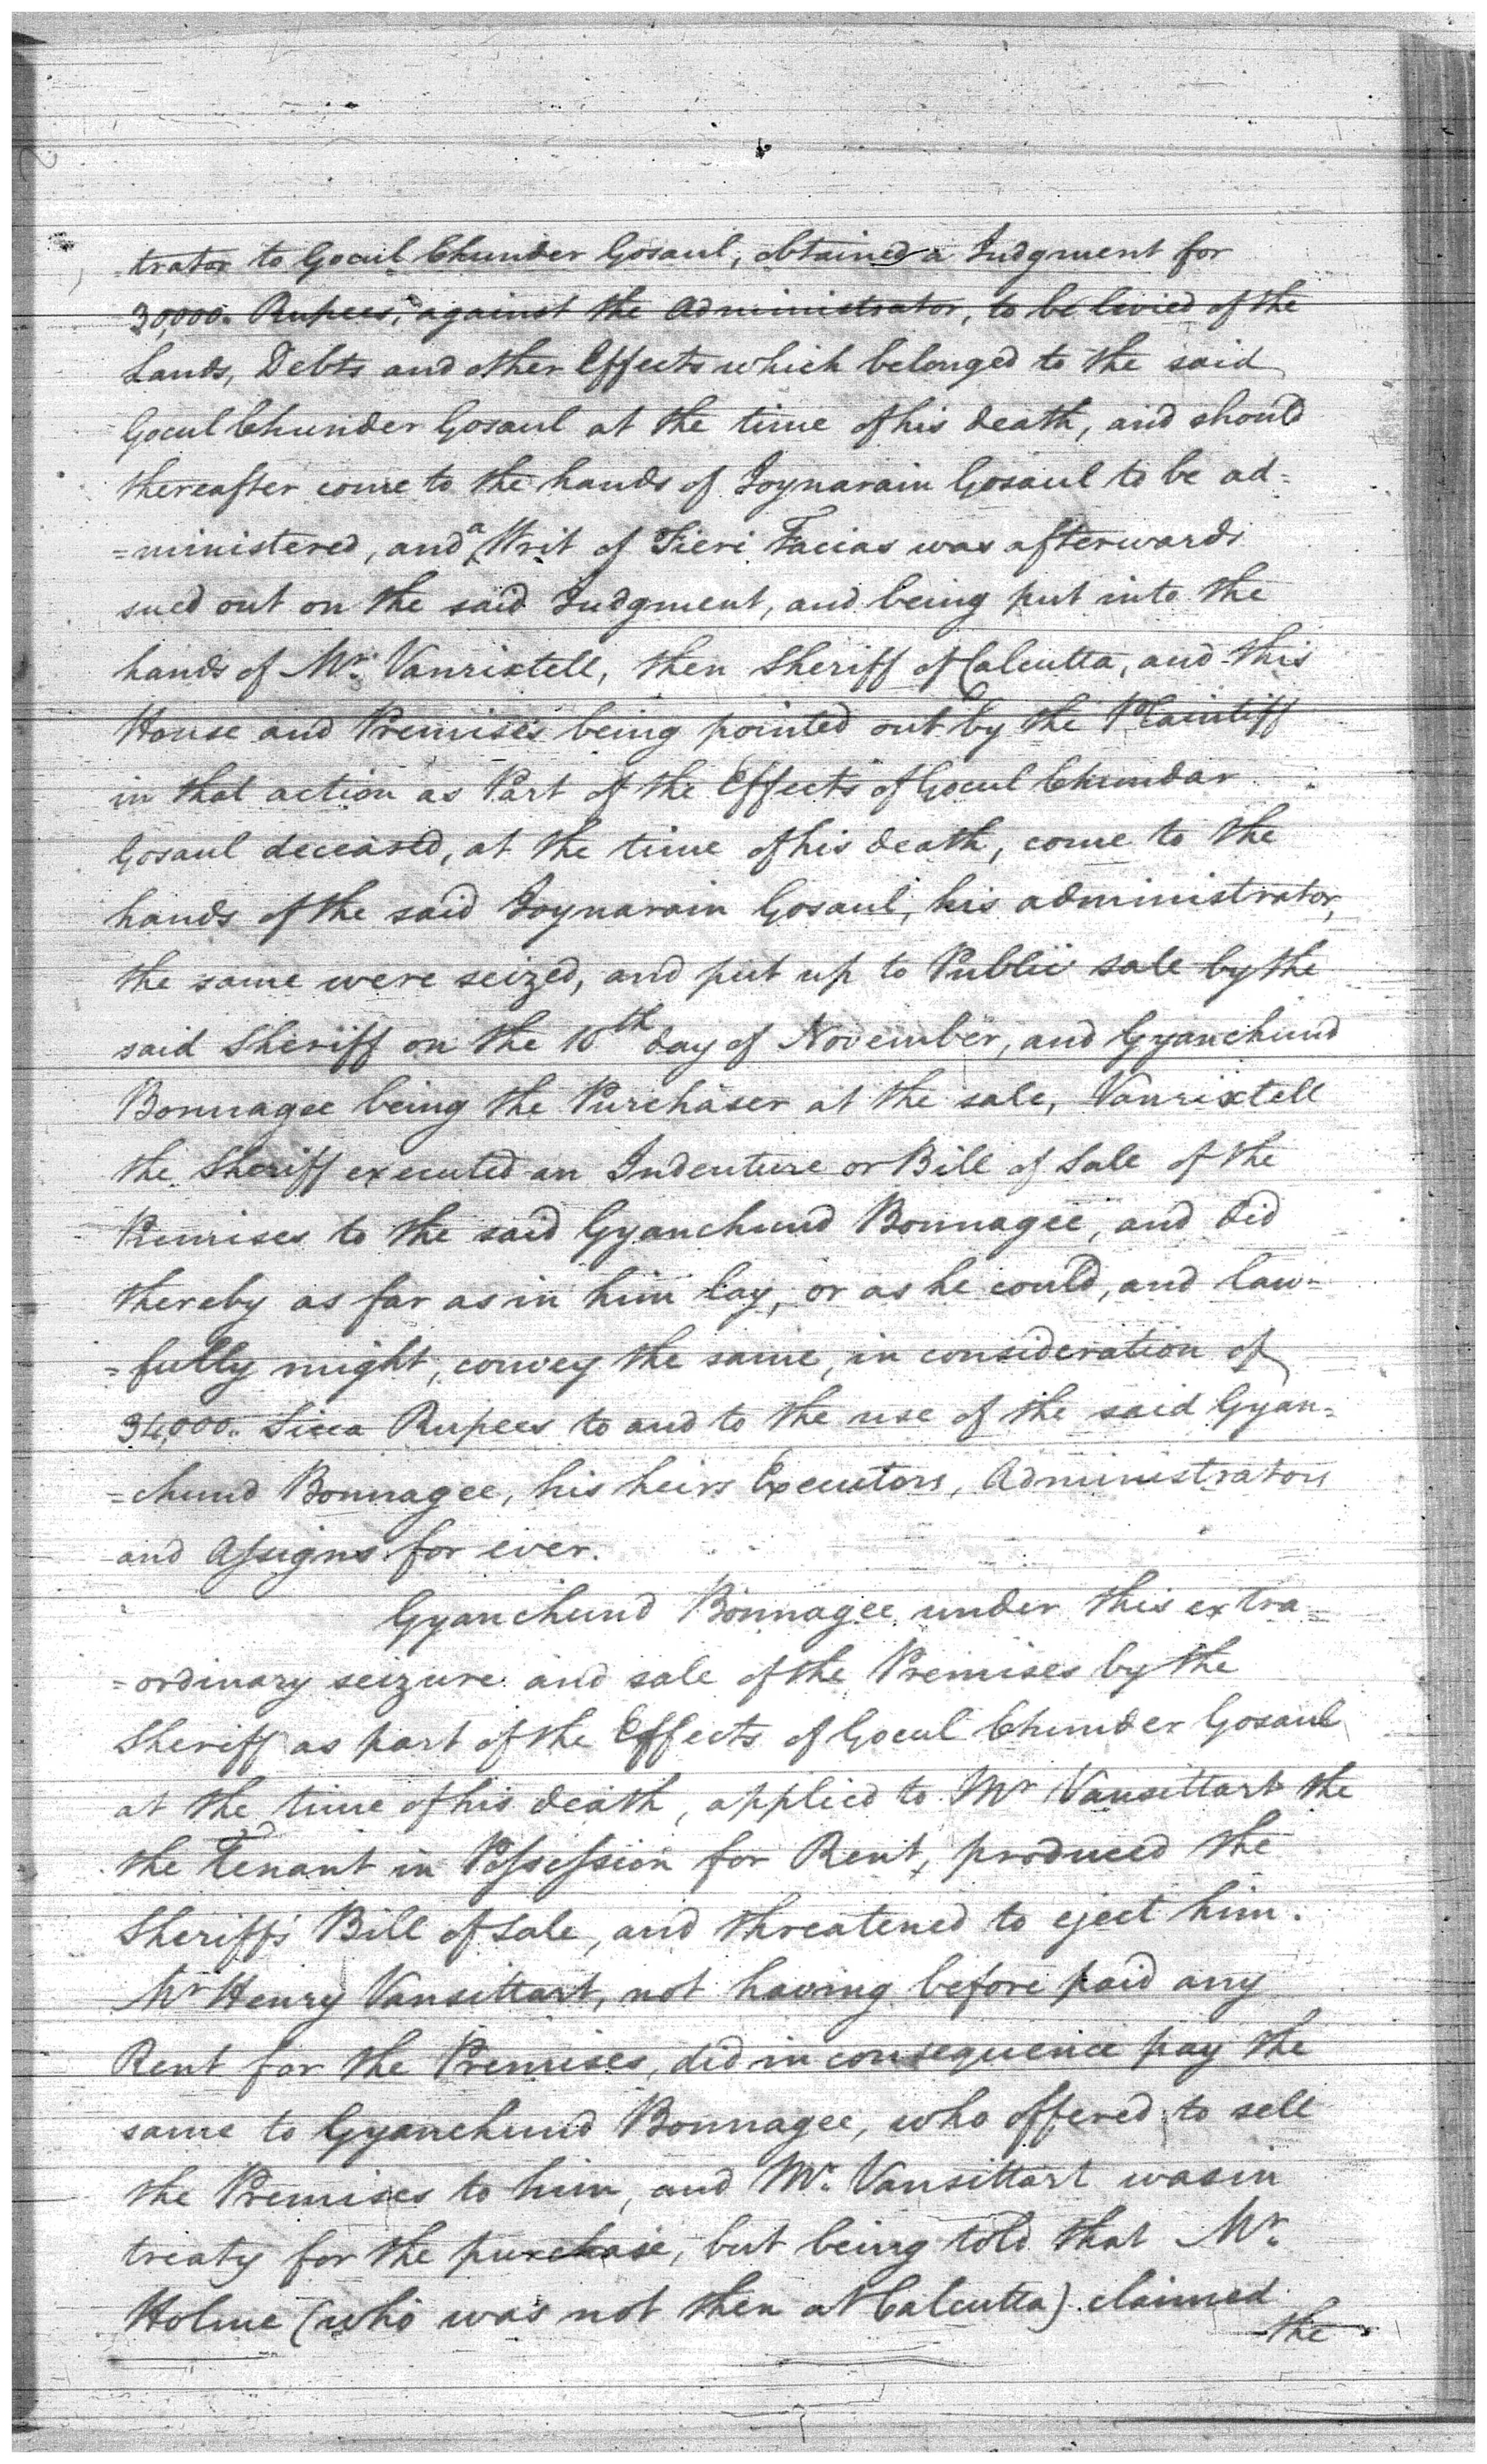 -trator to Gocul Chunder Gosaul, obtained a Judgment for
30,000. Rupees, against the Administrator, to be levied of the
Lands, Debts and other Effects which belonged to the said
Gocul Chunder Gosaul at the time of his death, and should
thereafter come to the hands of Joynarain Gosaul to be ad=
=ministered, and a Writ of Fieri Facias was afterwards
sued out on the said Judgment, and being put into the
hands of Mr. Vanrixtell, then Sheriff of Calcutta, and this
House and Premises being pointed out by the Plaintiff
in that action as Part of the Effects of Gocul Chundar
Gosaul deceased, at the time of his death, come to the
hands of the said Joynarain Gosaul, his administrator,
the same were seized, and put up to Public sale by the
said Sheriff on the 10th day of November, and Gyanchund
Bonnagee being the Purchaser at the sale, Vanrixtell
the Sheriff executed an Indenture or Bill of Sale of the
Premises to the said Gyanchund Bonnagee, and did
thereby as far as in him lay, or as he could, and law=
=fully might, convey the same, in consideration of
34,000. Sicca Rupees to and to the use of the said Gyan=
=chund Bonnagee, his heirs Executors, Administrators
and Assigns for ever.
Gyanchund Bonnagee under this extra=
=ordinary seizure and sale of the Premises by the
Sheriff as part of the Effects of Gocul Chunder Gosaul
at the time of his death, applied to Mr Vansittart the
the Tenant in Possession for Rent, produced the
Sheriffs Bill of Sale, and threatened to eject him.
Mr Henry Vansittart, not having before paid any
Rent for the Premises, did in consequence pay the
same to Gyanchund Bonnagee, who offered to sell
the Premises to him, and Mr. Vansittart was in
treaty for the purchase, but being told that Mr.
Holme (who was not then at Calcutta) claimed
the